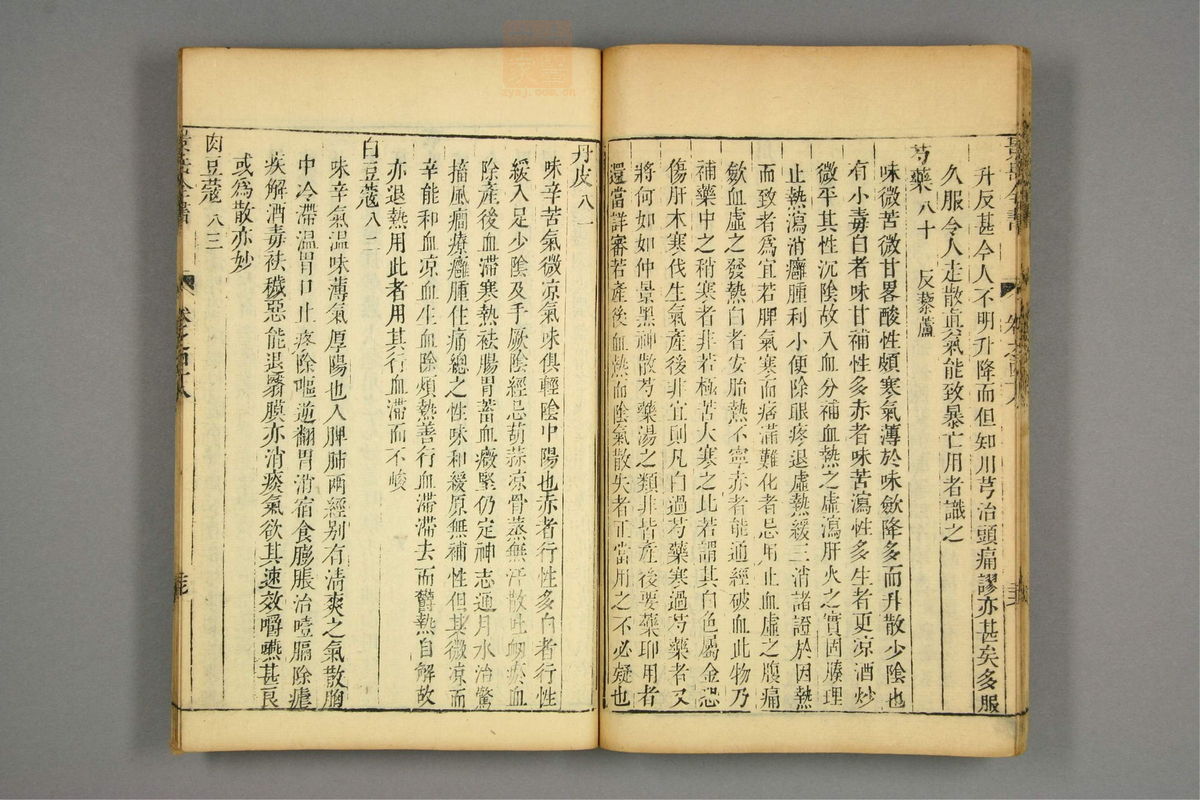 升反甚今人不明升降而但知川芎治頭痛謬亦甚矣多服
久服令人走散眞氣能致暴亡用者識之
芍藥八十 反藜蘆
味微苦微甘畧酸性頗寒氣薄於味斂降多而升散少陰也
有小毒白者味甘補性多赤者味苦瀉性多生者更凉酒炒
微平其性沉陰故入血分補血熱之虛瀉肝火之實固腠理
止熱瀉消癰腫利小便除眼疼退虛熱緩三消諸證於因熱
而致者爲宜若脾氣寒而痞滿難化者忌用止血虛之腹痛
斂血虛之發熱白者安胎熱不寧赤者能通經破血此物乃
補藥中之稍寒者非若極苦大寒之比若謂其白色屬金恐
傷肝木寒伐生氣產後非宜則凡白過芍藥寒過芍藥者又
將何如如仲景黑神散芍藥湯之類非皆產後要藥耶用者
還當詳審若產後血熱而陰氣散失者正當用之不必疑也
丹皮八一
味辛苦氣微凉氣味俱輕陰中陽也赤者行性多白者行性
緩入足少陰及手厥陰經忌葫蒜凉骨蒸無汗散吐衂瘀血
除產後血滯寒熱祛腸胃蓄血癥堅仍定神志通月水治驚
搐風癇療癰腫住痛總之性味和緩原無補性但其微凉而
辛能和血凉血生血除煩熱善行血滯滯去而鬱熱自解故
亦退熱用此者用其行血滯而不峻
白豆蔻八二
味辛氣溫味薄氣厚陽也入脾肺兩經别有清爽之氣散胸
中冷滯溫胃口止疼除嘔逆翻胃消宿食膨脹治噎膈除瘧
疾解酒毒祛穢惡能退翳膜亦消痰氣欲其速效嚼嚥甚良
或爲散亦妙
肉豆蔻八三
景岳全書 卷之四八